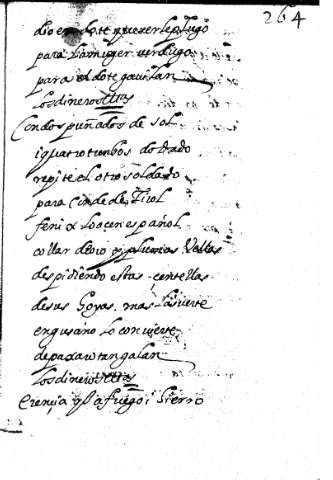 264
dio en dote y muger le plugo
para la muger verdugo
para el dote gauilan
los dineros ettas
Con dos puñados de sol
i quatro tunbos de dado
repite el otro soldado
para Conde de Tirol
fenix lo acen español
collar de oro y plumas Vellas
despidiendo estas centellas
de sus Goyas. mas la suerte
en gusano lo conuierte
de paxaro tan galan
los dineros ettas
Erençia q̃ a fuego i Yierro